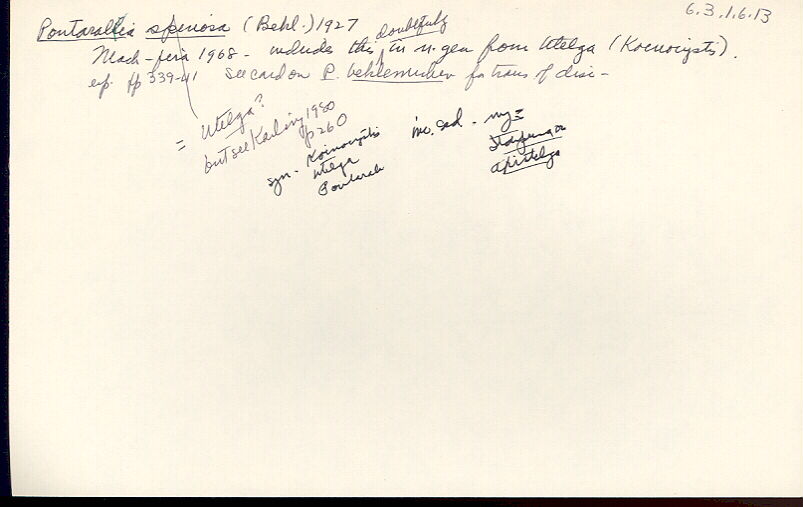 6.3.1.6.13
Pontarallia spinosa (Behl.) 1927
Mack-fira 1968 - includes this doubtfully in n. gen from Utelga (Koinocystis).
esp. pp 339-41 see card on P. beklemichevi for trans of disc -
= Utelga?
but see Karling 1980
p260
syn - Koinocystis
Utelga
Pontarali
inc. sed. -
Utelga